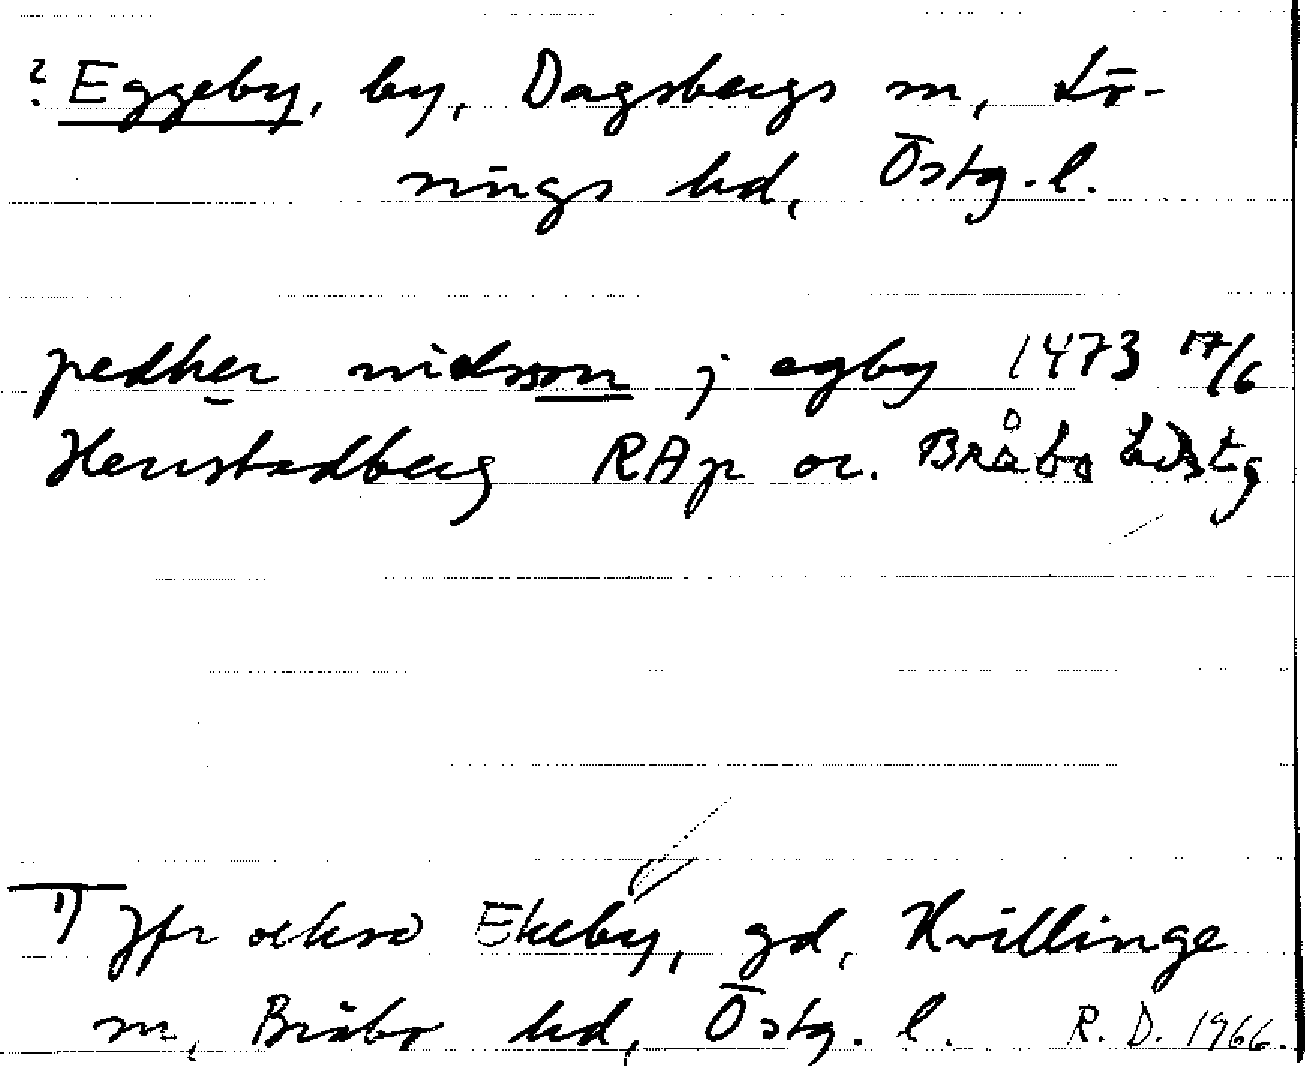 ? Eggeby, by, Dagsbergs sn, Lö-
nings hd, Östg. l.
pedher nielsson j egby 1473 17/6
Herrstadberg RAp or. Bråbo Östg
1) Jfr också Ekeby, gd, Kvillinge
sn, Bråbo hd, Östg. l. R. D. 1966.